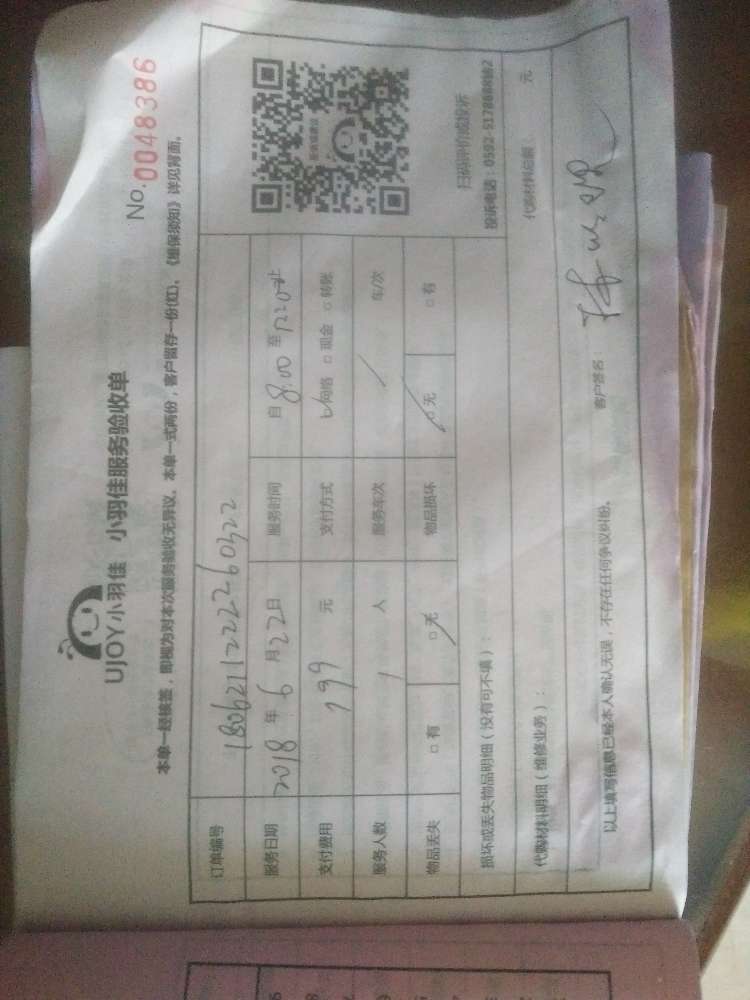 UJOY小羽佳 小羽佳服务验收单
No.0048386
本单一经核签，即视为对本次服务验收无异议。本单一式两份，客户留存一份(红)。《维保须知》详见背面。
订单编号 1806211222260322
服务日期 2018年6月22日 服务时间 自8:00至12:0止
支付费用 199元 支付方式 网络 □现金 □转账
服务人数 1人 服务车次 / 车/次
物品丢失 □有 □无 物品损坏 □无 □有
扫码评价或投诉
损坏或丢失物品明细（没有可不填）：
代购材料明细（维修业务）：
代购材料总额： 元
以上填写信息已经本人确认无误，不存在任何争议纠纷。 客户签名：